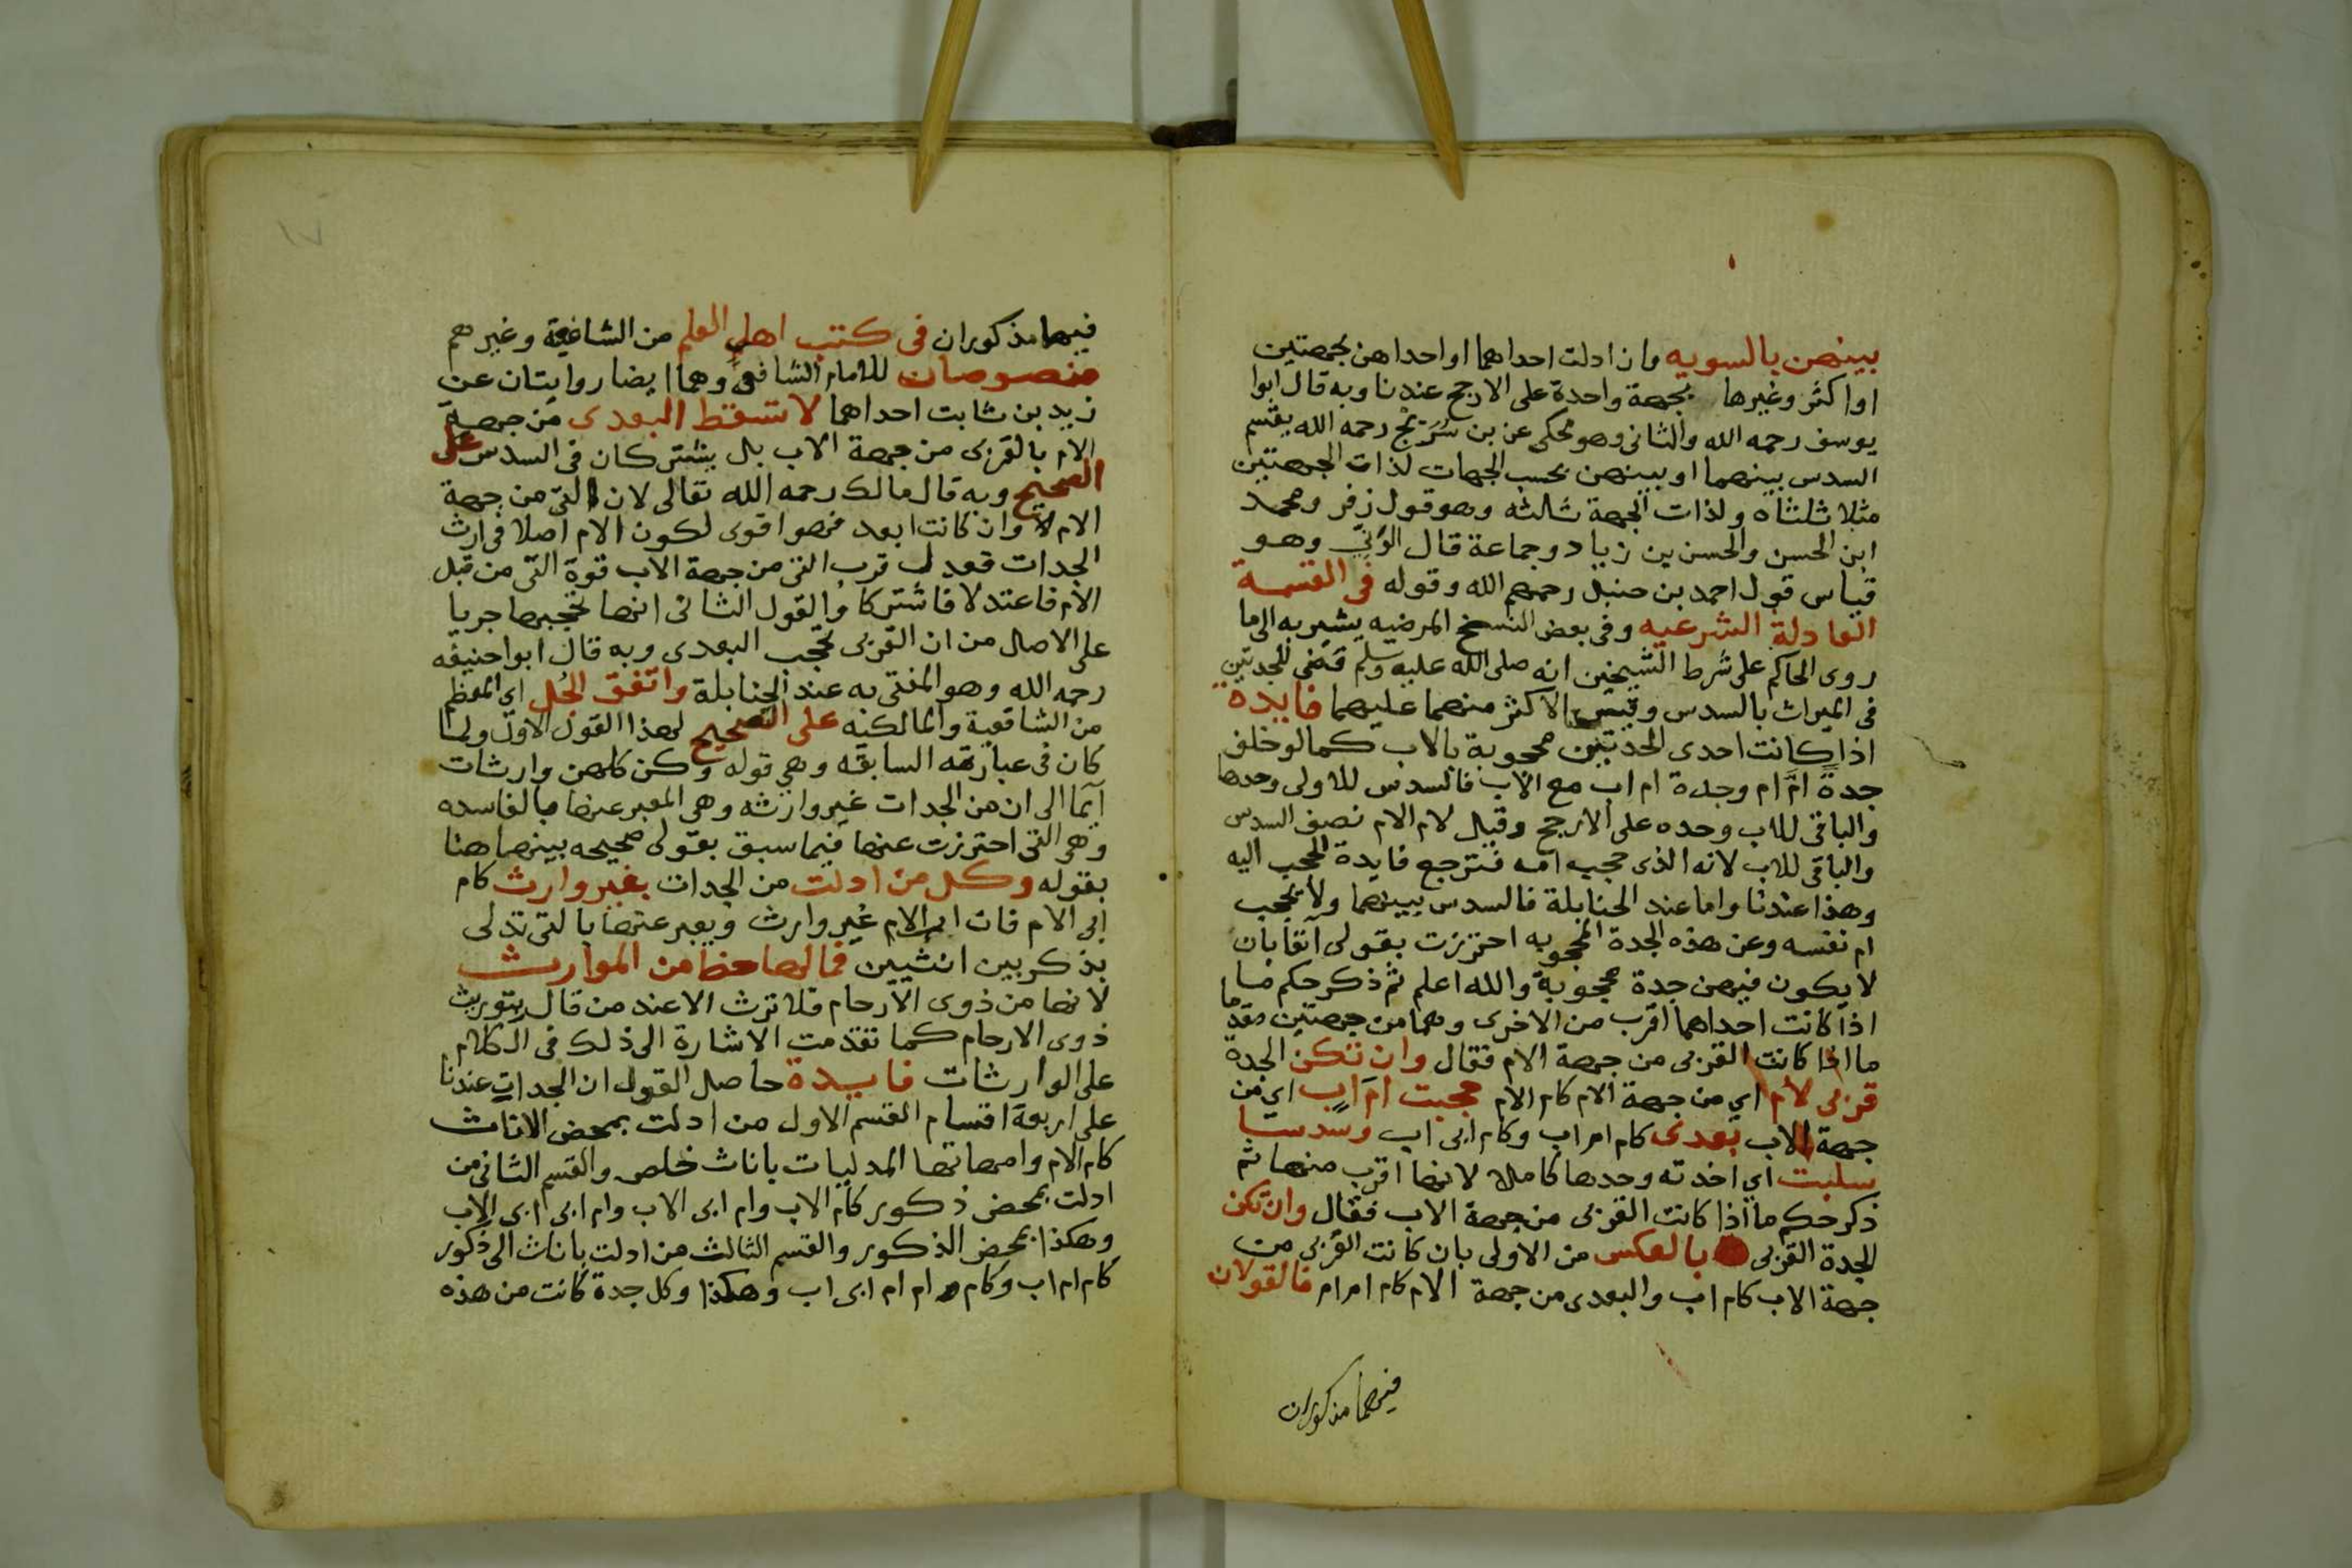 بينهن بالسويه وان ادلت احداهما او احداهن بجهتين
او اكثر وغيرها بجهة واحدة على الارجح عندنا وبه قال ابوا
يوسف رحمه الله والثانى وهو محكى عن بن سُرَيْج رحمه الله يقسم
السدس بينهما او بينهن بحسب الجهات لذات الجهتين
مثلا ثلثاه ولذات الجهة ثلثه وهو قول زفر ومحمد
ابن الحسن والحسن بن زياد وجماعة قال الوَنّي وهو
قياس قول احمد بن حنبل رحمهم الله وقوله فى القسمة
العادلة الشرعيه وفى بعض النسخ المرضيه يشير به الى ما
روى الحاكم على شرط الشيخين انه صلى الله عليه وسلم قضى للجدتين
فى الميراث بالسدس وقيس الاكثر منهما عليهما فايدة
اذا كانت احدى الجدتين محجوبة بالاب كما لو خلف
جدة امَّ ام وجدة ام اب مع الاب فالسدس للاولى وحدها
والباقى للاب وحده على الارجح وقيل لام الام نصف السدس
والباقى للاب لانه الذى حجب امه فترجع فايدة الحجب اليه
وهذا عندنا واما عند الحنابلة فالسدس بينهما ولا يحجب
ام نفسه وعن هذه الجدة المحجوبه احترزت بقولى آنفا بان
لا يكون فيهن جدة محجوبة والله اعلم ثم ذكر حكم ما
اذا كانت احداهما اقرب من الاخرى وهما من جهتين مقدما
ما اذا كانت القربى من جهة الام فقال وان تكن الجدة
قربى لام اي من جهة الام كام الام حجبت امَّ ابٍ اي من
جهة الاب بعدى كام ام اب وكام ابى اب وسدسا
سلبت اي اخذته وحدها كاملا لانها اقرب منها ثم
ذكر حكم ما اذا كانت القربى من جهة الاب فقال وان تكن
الجدة القربى بالعكس من الاولى بان كانت القربى من
جهة الاب كام اب والبعدى من جهة الام كام ام ام فالقولان
فيهما مذكوران
فيهما مذكوران فى كتب اهل العلم من الشافعية وغيرهم
منصوصان للامام الشافعى وهما ايضا روايتان عن
زيد بن ثابت احداهما لا تسقط البعدى من جهة
الام بالقربى من جهة الاب بل يشتركان فى السدس على
الصحيح وبه قال مالك رحمه الله تعالى لان التى من جهة
الام وان كانت ابعد فهو اقوى لكون الام اصلا فى ارث
الجدات فعدل قرب التى من جهة الاب قوة التى من قبل
الام فاعتدلا فاشتركا والقول الثانى انها تحجبها جريا
على الاصل من ان القربى تحجب البعدى وبه قال ابوا حنيفه
رحمه الله وهو المفتى به عند الحنابلة واتفق الجُل اي المعظم
من الشافعية والمالكيه على التصحيح لهذا القول الاول ولما
كان فى عبارته السابقه وهي قوله وكن كلهن وارثات
ايما الى ان من الجدات غير وارثه وهى المعبر عنها بالفاسده
وهى التى احترزت عنها فيما سبق بقولى صحيحه بينها هنا
بقوله وكل من ادلت من الجدات بغير وارث كام
ابى الام فان ابا الام غير وارث ويعبر عنها بالتى تدلى
بذكر بين انثيين فما لها حظ من الموارث
لانها من ذوى الارحام فلا ترث الا عند من قال بتوريث
ذوى الارحام كما تقدمت الاشارة الى ذلك فى الكلام
على الوارثات فايدة حاصل القول ان الجدات عندنا
على اربعة اقسام القسم الاول من ادلت بمحض الاناث
كام الام وامهاتها المدليات باناث خلص والقسم الثانى من
ادلت بمحض ذكور كام الاب وام ابى الاب وام ابى ابى الاب
وهكذا بمحض الذكور والقسم الثالث من ادلت باناث الى ذكور
كام ام اب وكام ام ام ابى اب وهكذا وكل جدة كانت من هذه